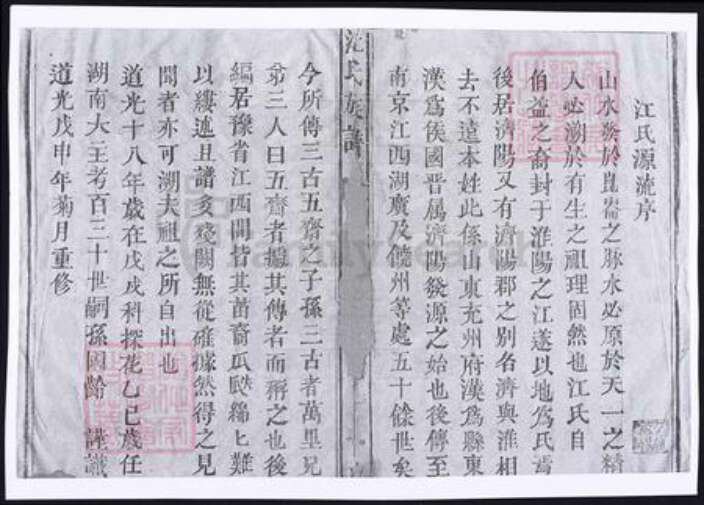 江氏源流序
山水發於崑崙之脉水必原於天一之精
人必溯於有生之祖理固然也江氏自
伯益之裔封于淮陽之江遂以地為氏焉
後居濟陽又有濟陽郡之别名濟與淮相
去不遠本姓此係山東兖州府漢為縣東
漢為侯國晋属濟陽發源之始也後傳至
南京江西湖廣及饒州等處五十餘世矣
江氏族譜
今所傳三古五齋之子孫三古者萬里兄
弟三人曰五齋者據其傳者而稱之也後
編居豫省江西間皆其苗裔瓜瓞綿匕難
以縷述且譜多殘闕無從確據然得之見
聞者亦可溯夫祖之所自出也
道光十八年歲在戊戌科探花乙巳歲任
湖南大主考百三十世嗣孫國齡 謹識
道光戊申年菊月重修
FamilySearch